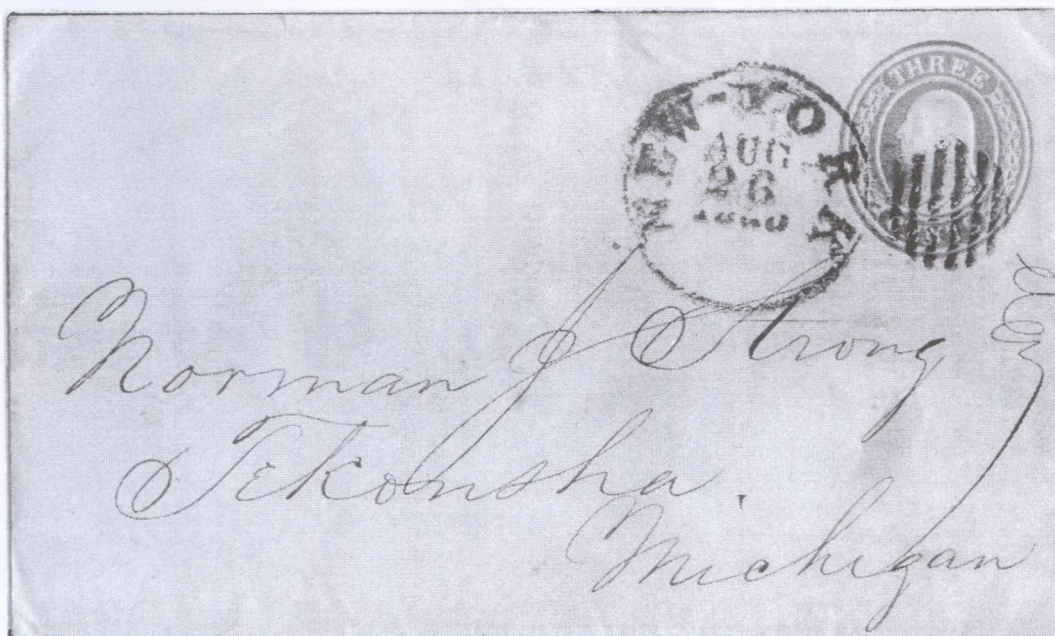 THREE
CENTS
NEW-YORK
AUG
26
Norman J Strong Esq
Tekonsha.
Michigan